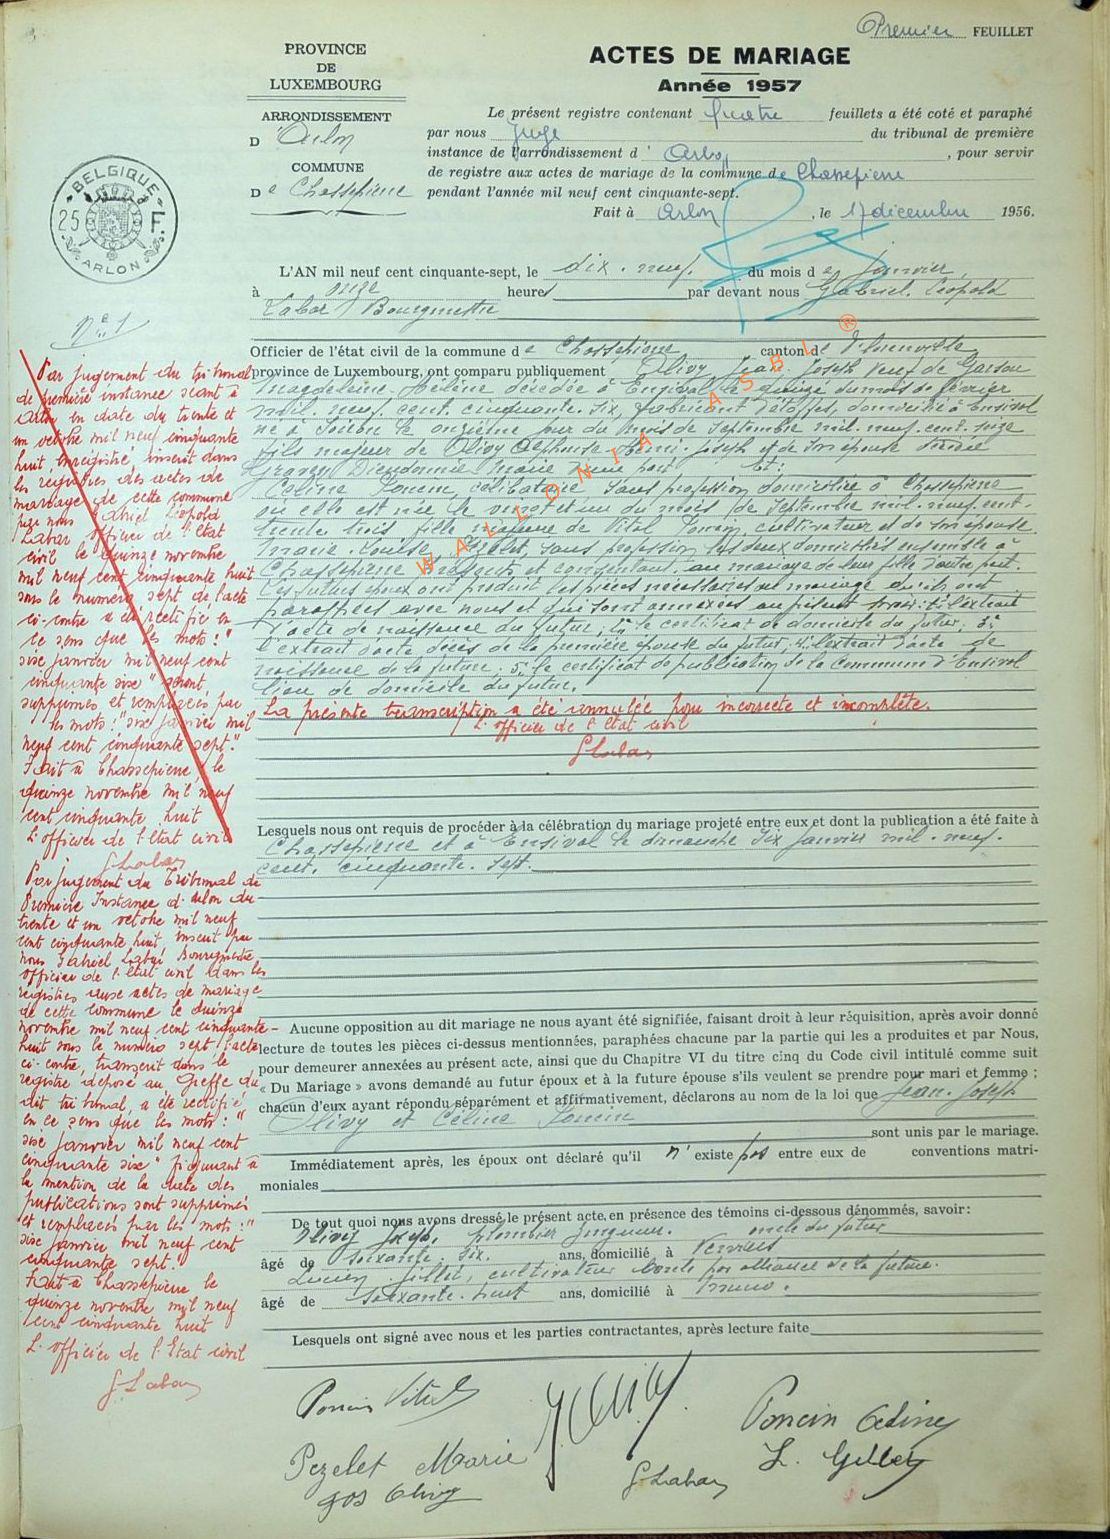 Premier FEUILLET
PROVINCE
DE
LUXEMBOURG
ARRONDISSEMENT
D'Arlon
COMMUNE
De Chassepierre
BELGIQUE
25 F.
ARLON
ACTES DE MARIAGE
Année 1957
Le présent registre contenant quatre feuillets a été coté et paraphé
par nous Juge du tribunal de première
instance de l'arrondissement d'Arlon, pour servir
de registre aux actes de mariage de la commune de Chassepierre
pendant l'année mil neuf cent cinquante-sept.
Fait à Arlon, le 17 décembre 1956.
L'AN mil neuf cent cinquante-sept, le dix-neuf du mois de janvier,
à onze heures par devant nous Gabriel Léopold
Labar Bourgmestre
N° 1
Officier de l'état civil de la commune de Chassepierre canton de Florenville
province de Luxembourg, ont comparu publiquement Olivy Jean Joseph veuf de
Magdeleine Hélène décédée à Ensival le quinze du mois de février
mil neuf cent cinquante-six, fabricant d'étoffes, domicilié à Ensival
né à le onzième jour du mois de septembre mil neuf cent seize
fils majeur de Olivy Alphonse Remi Joseph et de son épouse
Dieudonnée Marie d'une part Et:
Céline Poncin, célibataire sans profession domiciliée à Chassepierre
où elle est née le vingt et un du mois de septembre mil neuf cent
trente trois fille majeure de Vital Poncin, cultivateur et de son épouse
Marie Louise Pezelet, sans profession les deux domiciliés ensemble à
Chassepierre présents et consentant au mariage de leur fille d'autre part.
Les futurs époux ont produit les pièces nécessaires au mariage qu'ils ont
paraffées avec nous et qui sont annexées au présent savoir: 1° l'extrait
d'acte de naissance du futur; 2° le certificat de domicile du futur; 3°
l'extrait d'acte décès de la première épouse du futur; 4° l'extrait d'acte de
naissance de la future; 5° le certificat de publication de la commune d'Ensival
lieu de domicile du futur.
La présente transcription a été annulée pour incorrecte et incomplète.
L'officier de l'état civil
G Labar
WALLONIA ASBL ®
Lesquels nous ont requis de procéder à la célébration du mariage projeté entre eux et dont la publication a été faite à
Chassepierre et à Ensival le dimanche six janvier mil neuf
cent cinquante-sept.
Aucune opposition au dit mariage ne nous ayant été signifiée, faisant droit à leur réquisition, après avoir donné
lecture de toutes les pièces ci-dessus mentionnées, paraphées chacune par la partie qui les a produites et par Nous,
pour demeurer annexées au présent acte, ainsi que du Chapitre VI du titre cinq du Code civil intitulé comme suit
« Du Mariage » avons demandé au futur époux et à la future épouse s'ils veulent se prendre pour mari et femme ;
chacun d'eux ayant répondu séparément et affirmativement, déclarons au nom de la loi que Jean-Joseph
Olivy et Céline Poncin
sont unis par le mariage.
Immédiatement après, les époux ont déclaré qu'il n'existe pas entre eux de conventions matri-
moniales
De tout quoi nous avons dressé le présent acte, en présence des témoins ci-dessous dénommés, savoir :
Olivy Joseph, plombier zingueur. oncle du futur
âgé de soixante-six ans, domicilié à Verviers
Lucien Gillet, cultivateur oncle par alliance de la future.
âgé de soixante-huit ans, domicilié à
Lesquels ont signé avec nous et les parties contractantes, après lecture faite
Poncin Vital
Poncin Céline
Pezelet Marie
L. Gillet
Jos Olivy
G Labar
Par jugement du tribunal
de première instance séant à
Arlon en date du trente et
un octobre mil neuf cinquante
huit, enregistré, inscrit dans
les registres des actes de
mariage de cette commune
par nous Gabriel Léopold
Labar officier de l'état
civil le quinze novembre
mil neuf cent cinquante huit
sous le numéro sept, l'acte
ci-contre a été rectifié en
ce sens que les mots: "
six janvier mil neuf cent
cinquante six" seront
supprimés et remplacés par
les mots: "six janvier mil
neuf cent cinquante sept."
Fait à Chassepierre, le
quinze novembre mil neuf
cent cinquante huit
L'officier de l'état civil
G Labar
Par jugement du Tribunal de
Première Instance d'Arlon du
trente et un octobre mil neuf
cent cinquante huit, inscrit par
nous Gabriel Labar Bourgmestre
officier de l'état civil dans les
registres aux actes de mariage
de cette commune le quinze
novembre mil neuf cent cinquante-
huit sous le numéro sept l'acte
ci-contre, transcrit dans le
registre déposé au Greffe du
dit tribunal, a été rectifié
en ce sens que les mots: "
six janvier mil neuf cent
cinquante six" figurant à
la mention de la date des
publications sont supprimés
et remplacés par les mots: "
six janvier mil neuf cent
cinquante sept."
Fait à Chassepierre le
quinze novembre mil neuf
cent cinquante huit
L'officier de l'Etat civil
G. Labar